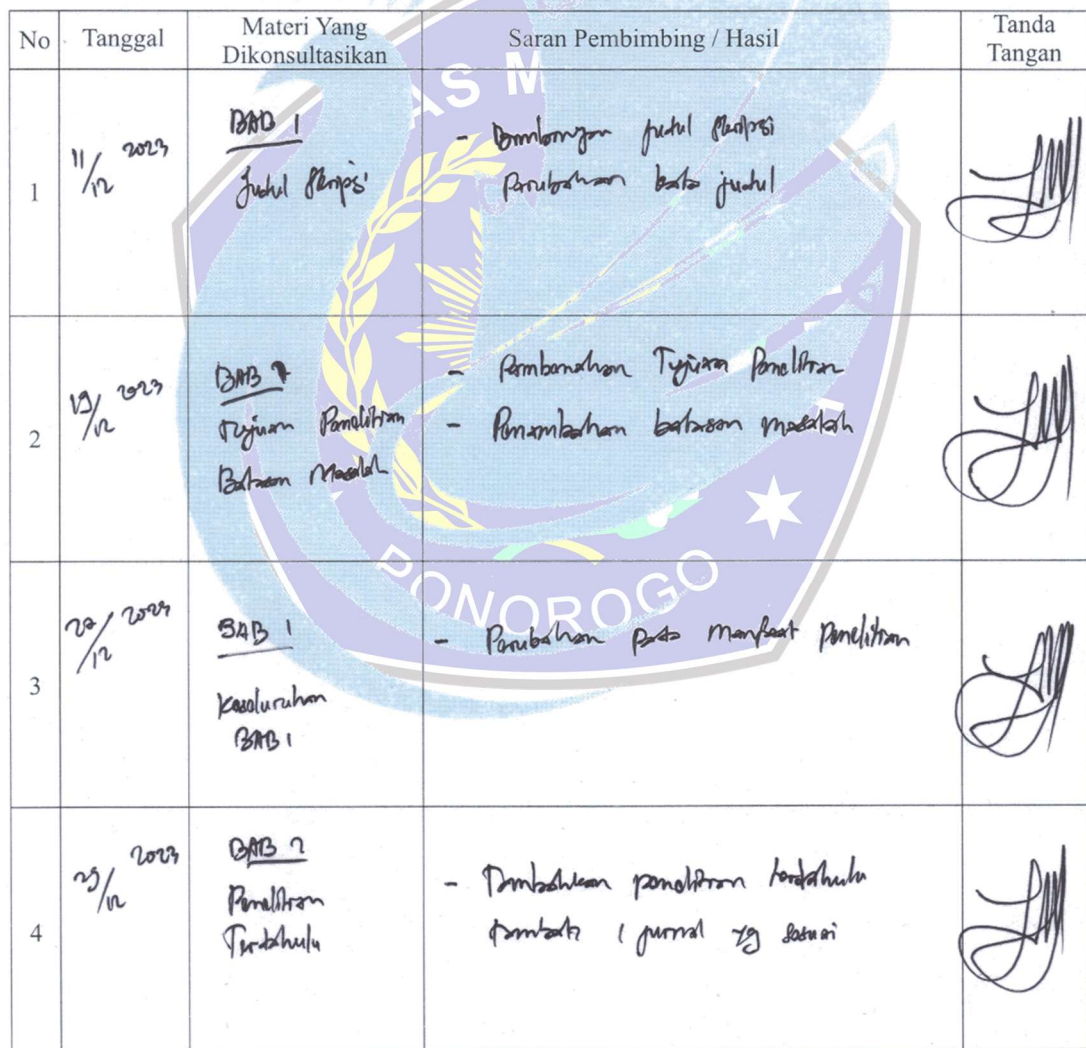 No Tanggal Materi Yang Dikonsultasikan Saran Pembimbing / Hasil Tanda Tangan
AS M
PONOROGO
1 11/12 2023 BAB 1
Judul Skripsi
- Bimbingan judul skripsi
Perubahan kata judul
2 19/12 2023 BAB 1
Tujuan Penelitian
Batasan Masalah
- Pembenahan Tujuan Penelitian
- Penambahan batasan masalah
3 /12 2023 BAB 1
Keseluruhan
BAB 1
- Perubahan pada manfaat penelitian
4 29/12 2023 BAB 2
Penelitian
Terdahulu
- Tambahkan penelitian terdahulu
1 jurnal yg sesuai